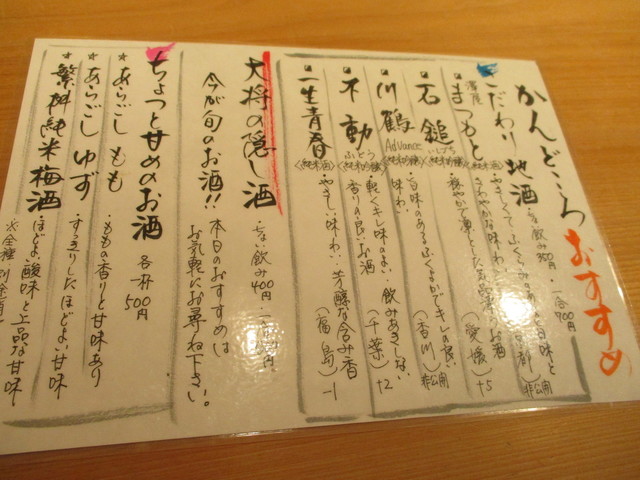 かんどころおすすめ
こだわり地酒 ・ちょい飲み350円 ・一合700円
澤屋まつもと〈純米酒〉
・やさしくてふくらみのある旨味と
さわやかな味わい 非公開
・穏やかで凛とした気品あるお酒(愛媛)+5
石鎚 いしづち〈純米吟醸〉
・旨味のあるふくよかでキレの良い
味わい(香川)非公開
川鶴 Advance〈純米吟醸〉
・軽くキレ味のよい飲みあきしない
香りの良いお酒(千葉)+2
不動 ふどう〈純米吟醸〉
一生青春〈純米酒〉
・やさしい味わい・芳醇な含み香
(福島)-1
大将の隠し酒 ・ちょい飲み400円
今が旬のお酒!! 本日のおすすめは
お気軽にお尋ね下さい。
ちょっと甘めのお酒 各一杯500円
★あらごしもも ・ももの香りと甘味あり
★あらごしゆず ・すっきりしたほどよい甘味
★繁桝純米梅酒 ・ほどよい酸味と上品な甘味